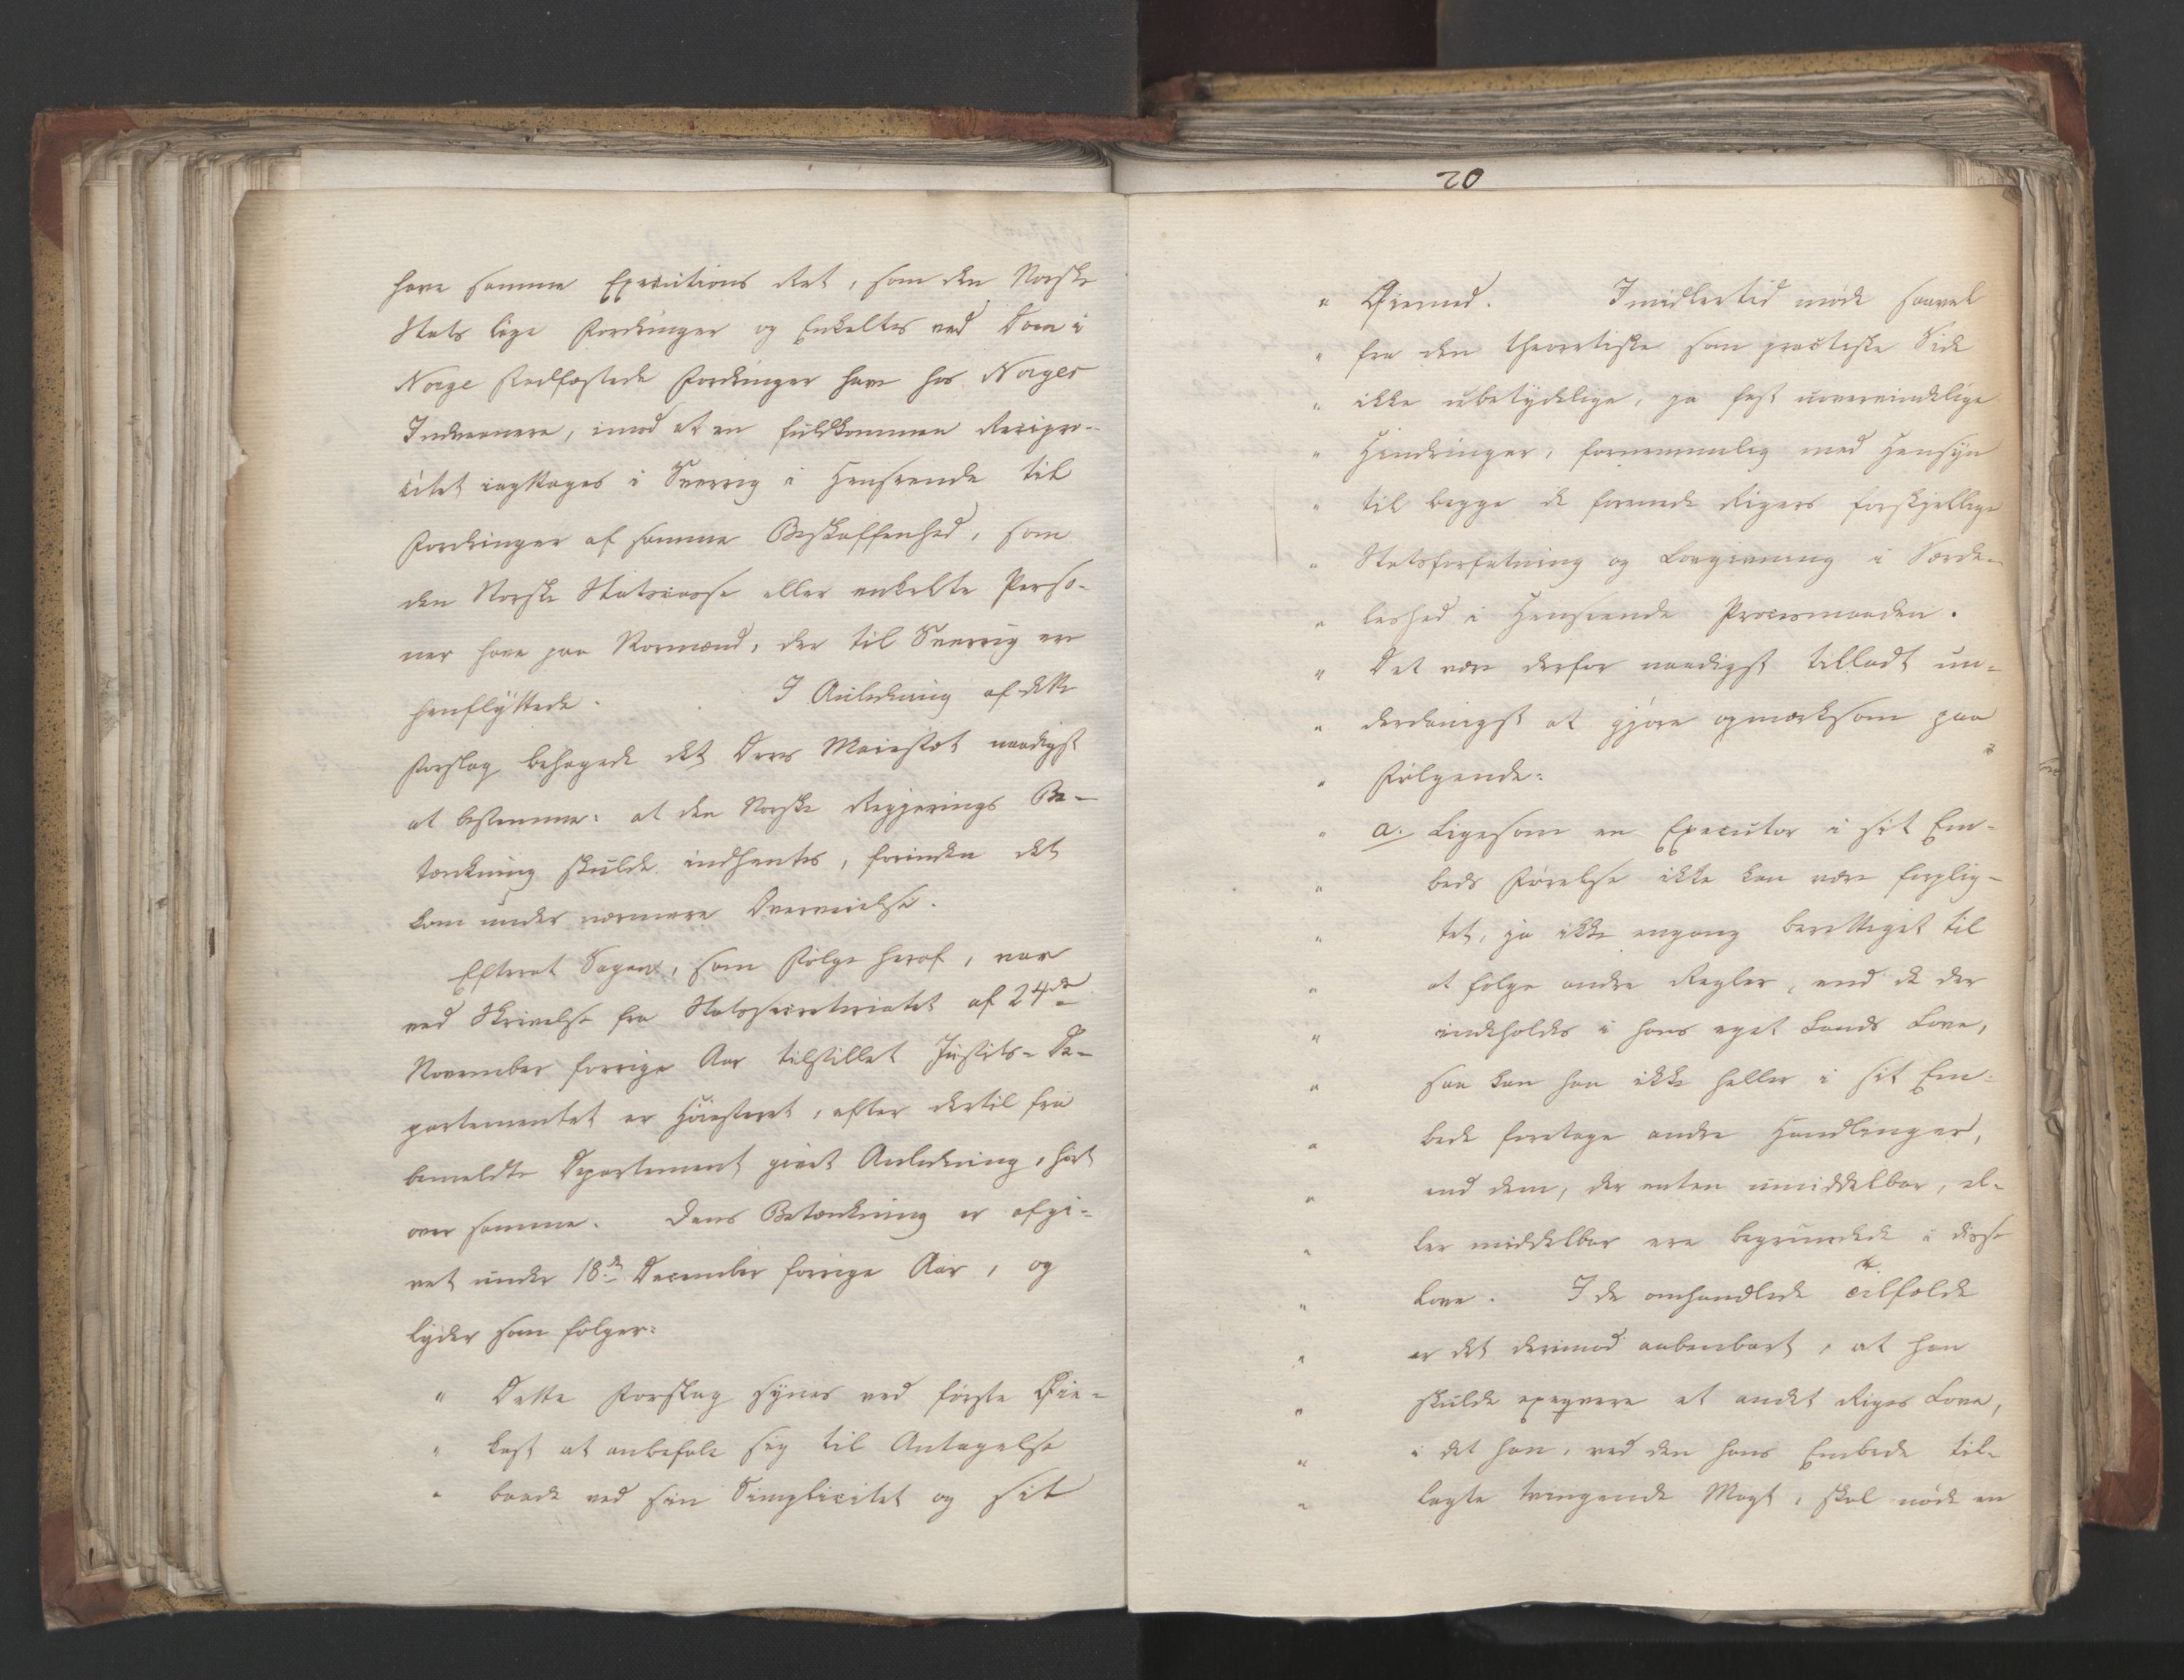 have samme Executions Ret, som den Norske
Stats lige Fordringer og Enkeltes ved Dom i
Norge stadfæstede Fordringer have hos Norges
Indvaanere, imod at en fuldkommen Recipro-
citet iagttages i Sverrig i Henseende til
Fordringer af samme Beskaffenhed, som
den Norske Statscasse eller enkelte Perso-
ner have paa Normænd, der til Sverrig ere
henflyttede. I Anledning af dette
Forslag behagede det Deres Majestæt naadigst
at bestemme: at den Norske Regjerings Be-
tænkning skulde indhentes, forinden det
kom under nærmere Overveielse.
Efterat Sagen, som Følge heraf, var
ved Skrivelse fra Statssecretariatet af 24de
November forrige Aar tilstillet Justits-De-
partementet er Høiesteret, efter dertil fra
bemeldte Departement givet Anledning, hørt
over samme. Dens Betænkning er afgi-
vet under 18de December forrige Aar, og
lyder som følger:
" Dette Forslag synes ved første Øie-
" kast at anbefale sig til Antagelse
" baade ved sin Simplicitet og sit
20
" Øiemed. Imidlertid møde saavel
" fra den theoretiske som practiske Side
" ikke ubetydelige, ja fast uovervindelige
" Hindringer, fornemmelig med Hensyn
" til begge de forenede Rigers forskjellige
" Statsforfatning og Lovgivning i Særde-
" leshed i Henseende Procesmaaden.
" Det være derfor naadigst tilladt un-
" derdanigst at gjøre opmærksom paa
" Følgende:
" a. Ligesom en Executor i sit Em-
" beds Førelse ikke kan være forplig-
" tet, ja ikke engang berettiget til
" at følge andre Regler, end de der
" indeholdes i hans eget Lands Love,
" saa kan han ikke heller i sit Em-
" bede foretage andre Handlinger,
" end dem, der enten umiddelbar, el-
" ler middelbar ere begrundede i disse
" Love. I de omhandlede Tilfælde
" er det derimod aabenbart, at han
" skulde exeqvere et andet Riges Love,
" i det han, ved den hans Embede til-
" lagte tvingende Magt, skal nøde en